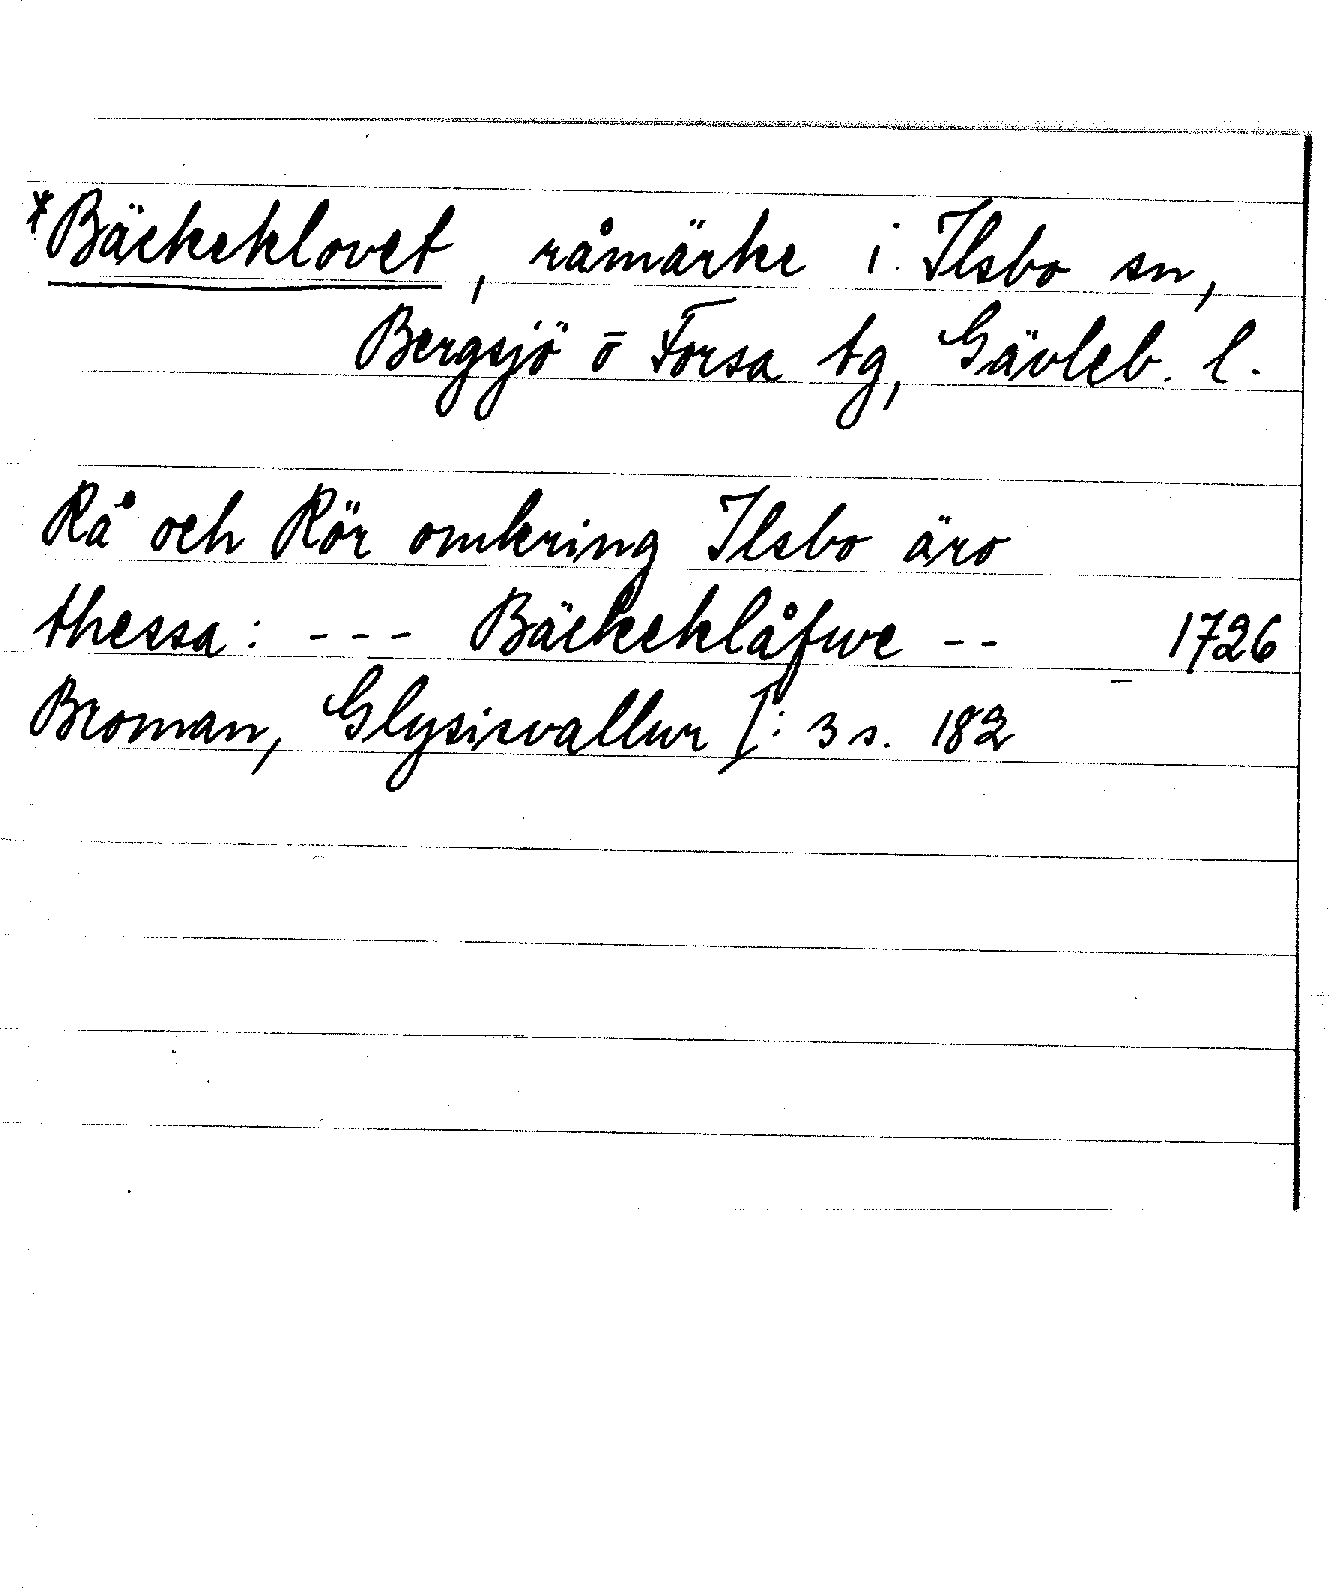 *Bäckeklovet, råmärke i Ilsbo sn,
Bergsjö o Forsa tg, Gävleb. l.
Rå och Rör omkring Ilsbo äro
thessa: --- Bäckeklåfwe -- 1726
Broman, Glysisvallur I: 3 s. 182